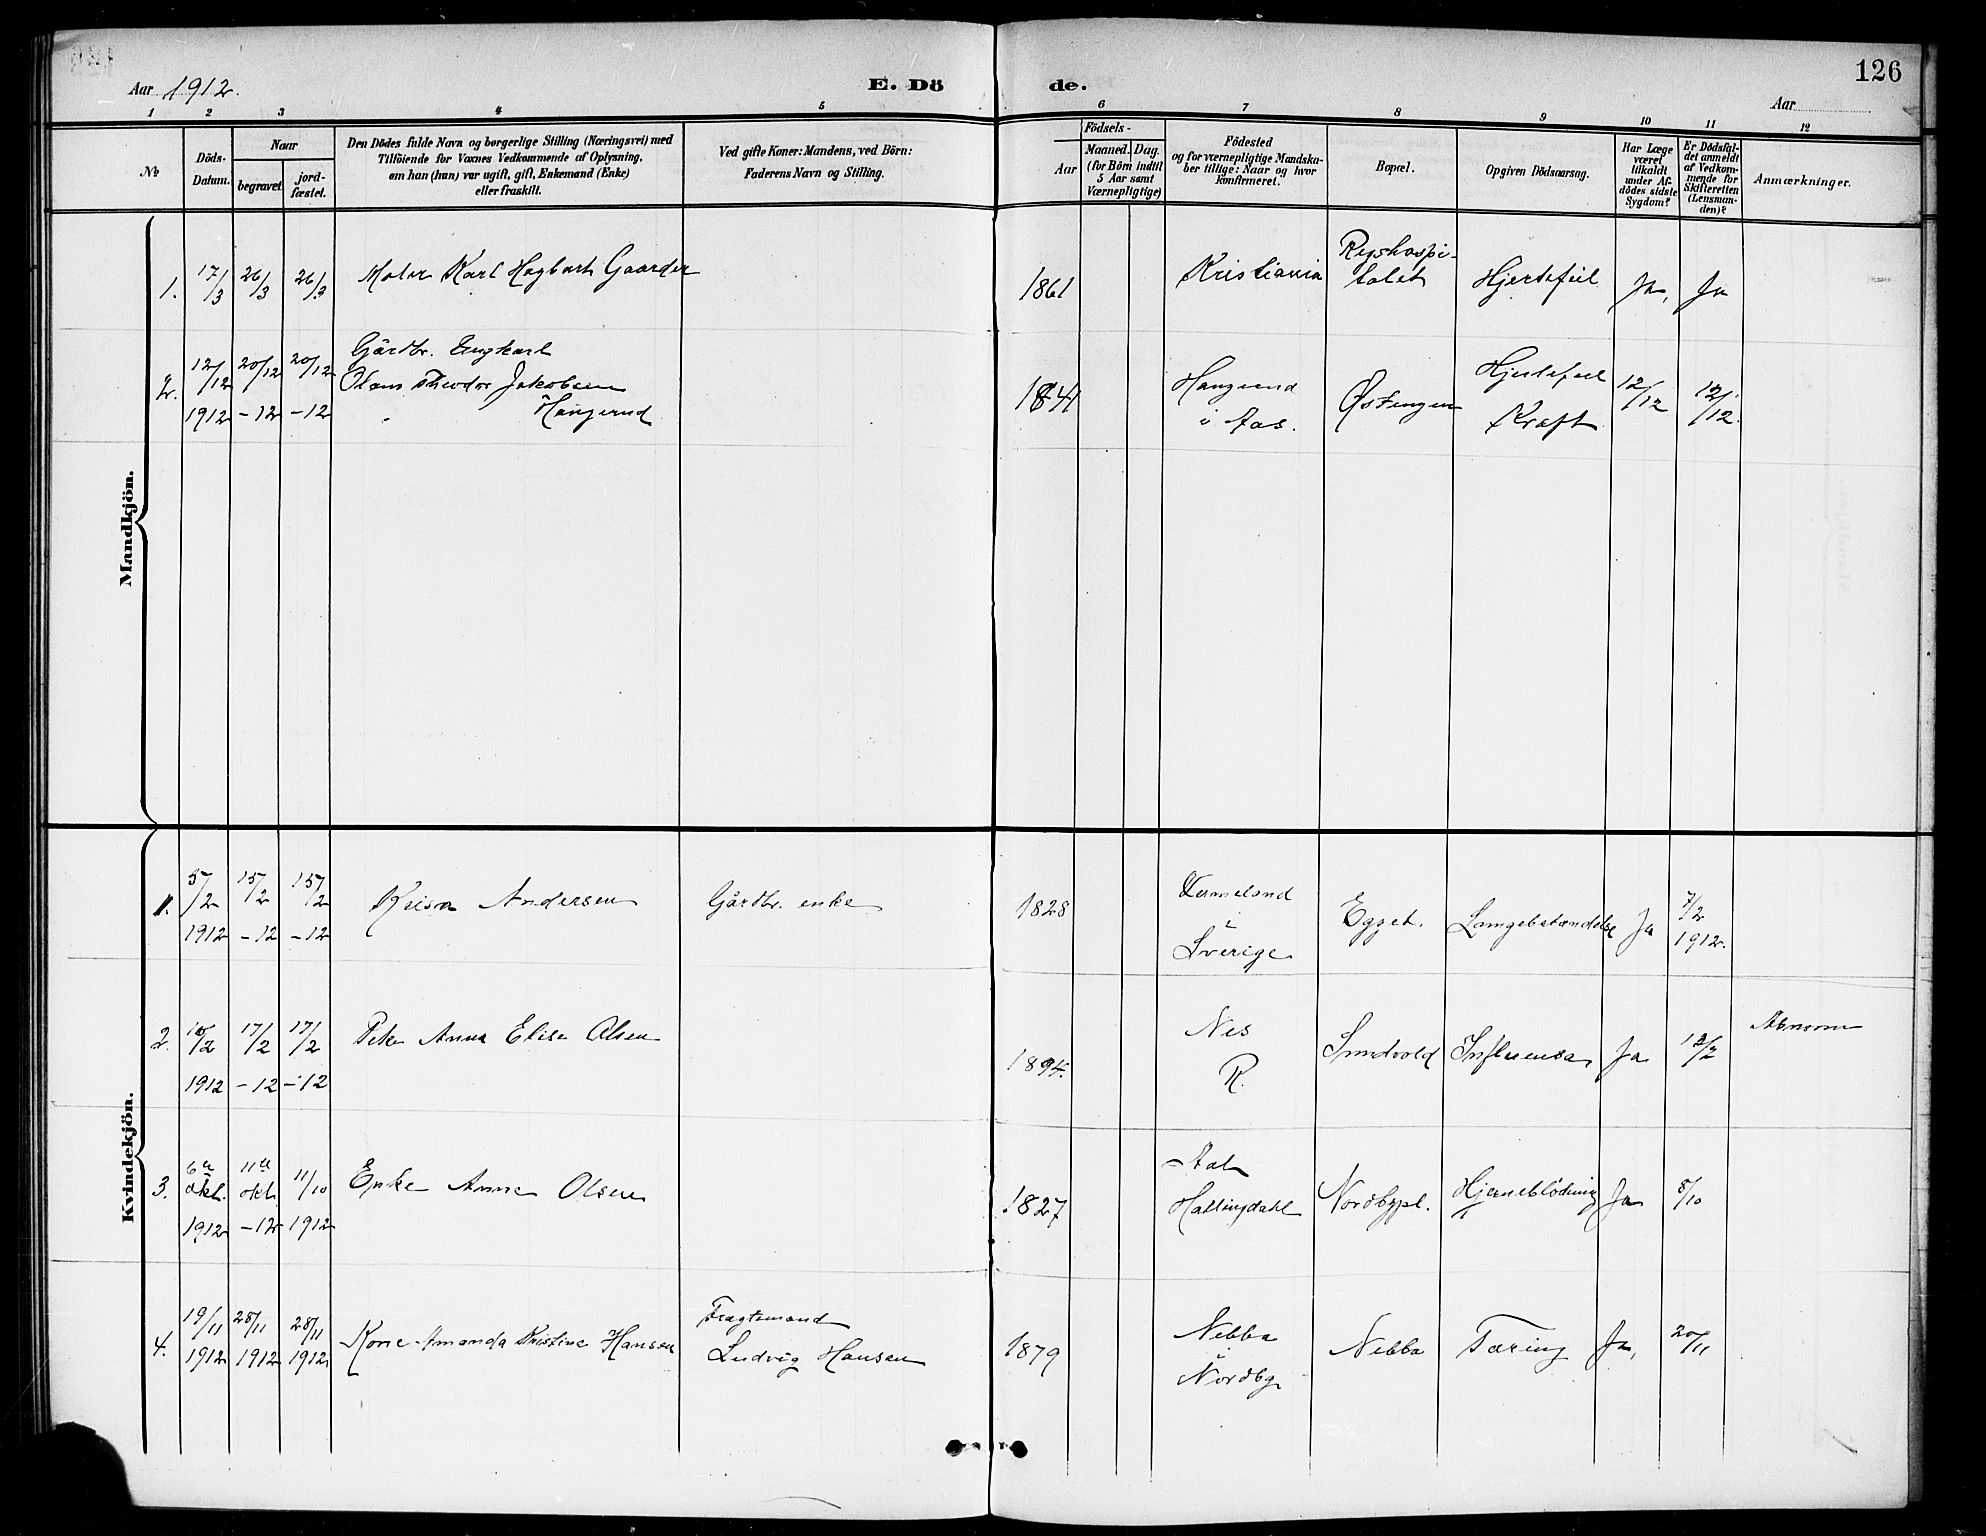 Aar 1912.
E. Dö
de.
126
Aar
1 2 3 4 5 6 7 8 9 10 11 12
No
Döds-
Datum.
Naar
begravet
jord-
fæstet.
Den Dödes fulde Navn og borgerlige Stilling (Næringsvei) med
Tilföiende for Voxnes Vedkommende af Oplysning,
om han (hun) var ugift, gift, Enkemand (Enke)
eller fraskilt.
Ved gifte Koner: Mandens, ved Börn:
Faderens Navn og Stilling.
Födsels-
Aar
Maaned. Dag.
(for Börn indtil
5 Aar samt
Værnepligtige)
Födested
og for værnepligtige Mandska-
ber tillige: Naar og hvor
konfirmeret.
Bopæl.
Opgiven Dödsaarsag.
Har Læge
været
tilkaldt
under Af-
dödes sidste
Sygdom?
Er Dödsfal-
det anmeldt
af Vedkom-
mende for
Skifteretten
(Lensman-
den)?
Anmærkninger.
Mandkjön.
1. 17/3 26/3 26/3 Maler Karl Hagbart Gaarder 1861 Kristiania Rigshospi-
talet Hjertefeil Ja, Ja
2. 12/12 20/12 20/12 Gårdbr. Engkarl
Hans Theodor Jakobsen
Haugerud
1912 -12 -12
1841 Haugerud
i Aas.
Østengen
Hjertefeil
Kræft
12/12
12/12.
Kvindekjön.
1. 5/2 15/2 15/2 Kaisa Andersen Gårdbr. enke 1828
1912 -12 -12
Vermeland
i
Sverige
Egget. Lungebetændelse Ja 7/2
1912.
2. 10/2 17/2 17/2 Pike Anna Elise Olsen
1912 -12 -12
1894. Nes
R.
Sundvold Influensa Ja 12/2 Abnorm
3. 6te
okt.
1912
11te
okt
-12
11/10
1912
Enke Anne Olsen
1827 Aal
Hallingdahl
Nordbypl. Hjerneblödning Ja 8/10
4. 19/11 28/11 28/11
1912 1912 1912
Kone Amanda Kristine Hansen
Fragtemand
Ludvig Hansen
1879 Nebba
i
Nordby
Nebba Tæring Ja, 20/11